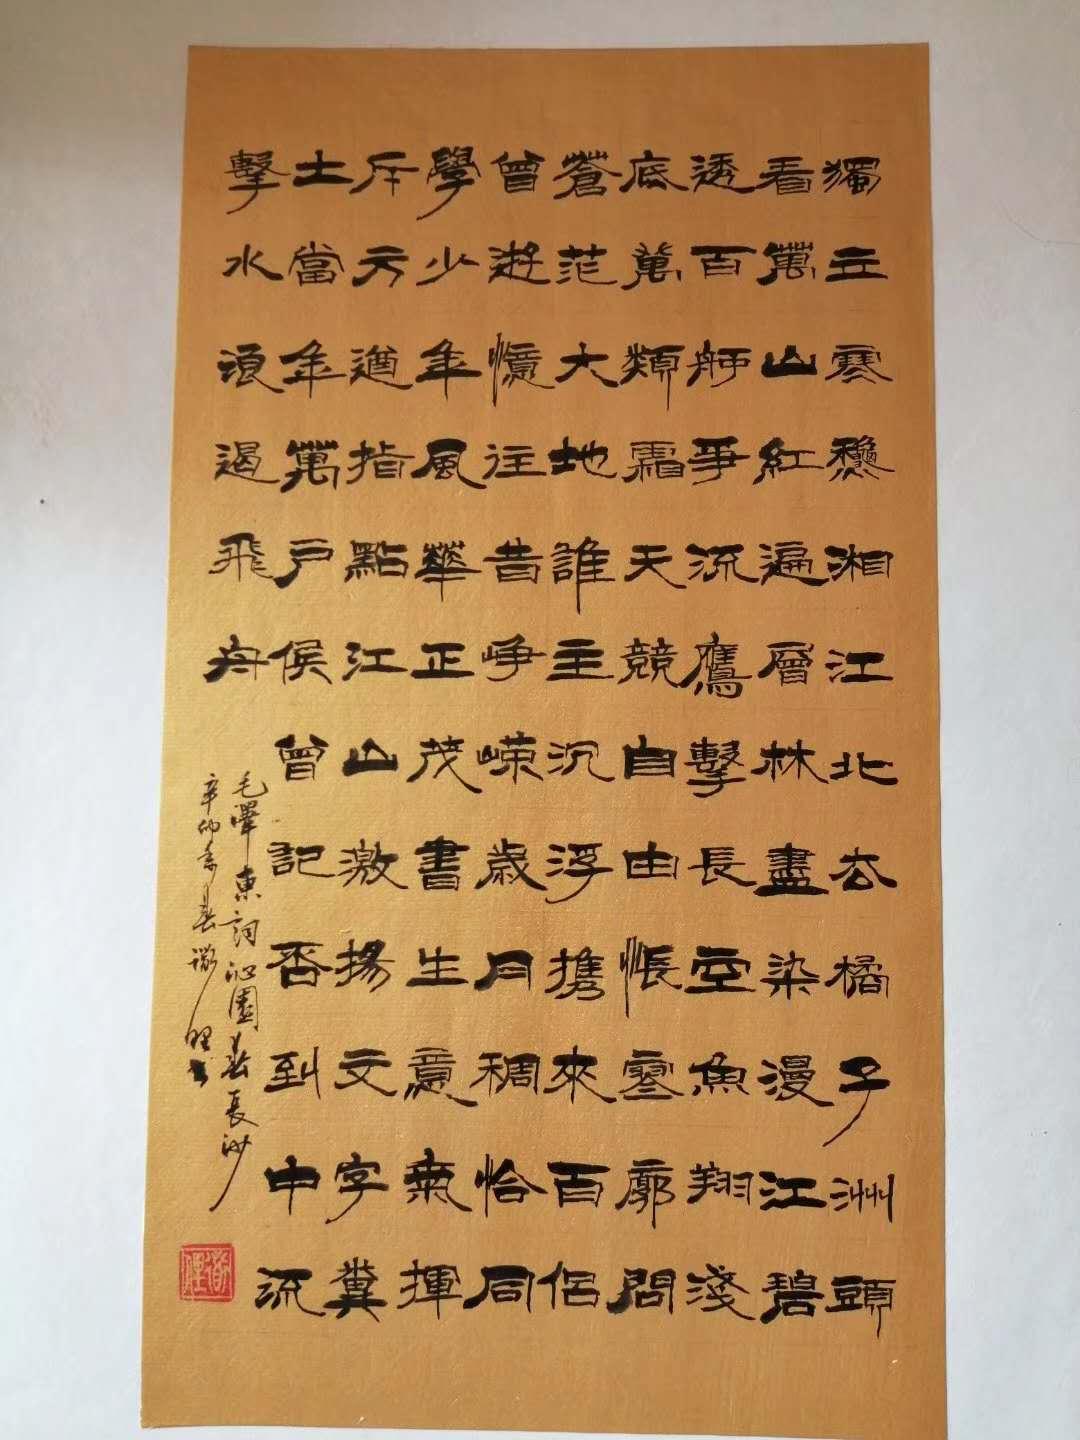 獨立寒龝湘江北去橘子洲頭
看萬山紅遍層林盡染漫江碧
透百舸爭流鷹擊長空魚翔淺
底萬類霜天競自由悵寥廓問
蒼茫大地誰主沉浮携來百侶
曾遊憶往昔崢嶸歲月稠恰同
學少年風華正茂書生意氣揮
斥方遒指點江山激揚文字糞
土當年萬戶侯曾記否到中流
擊水浪遏飛舟
毛澤東詞沁園春長沙
辛卯年春